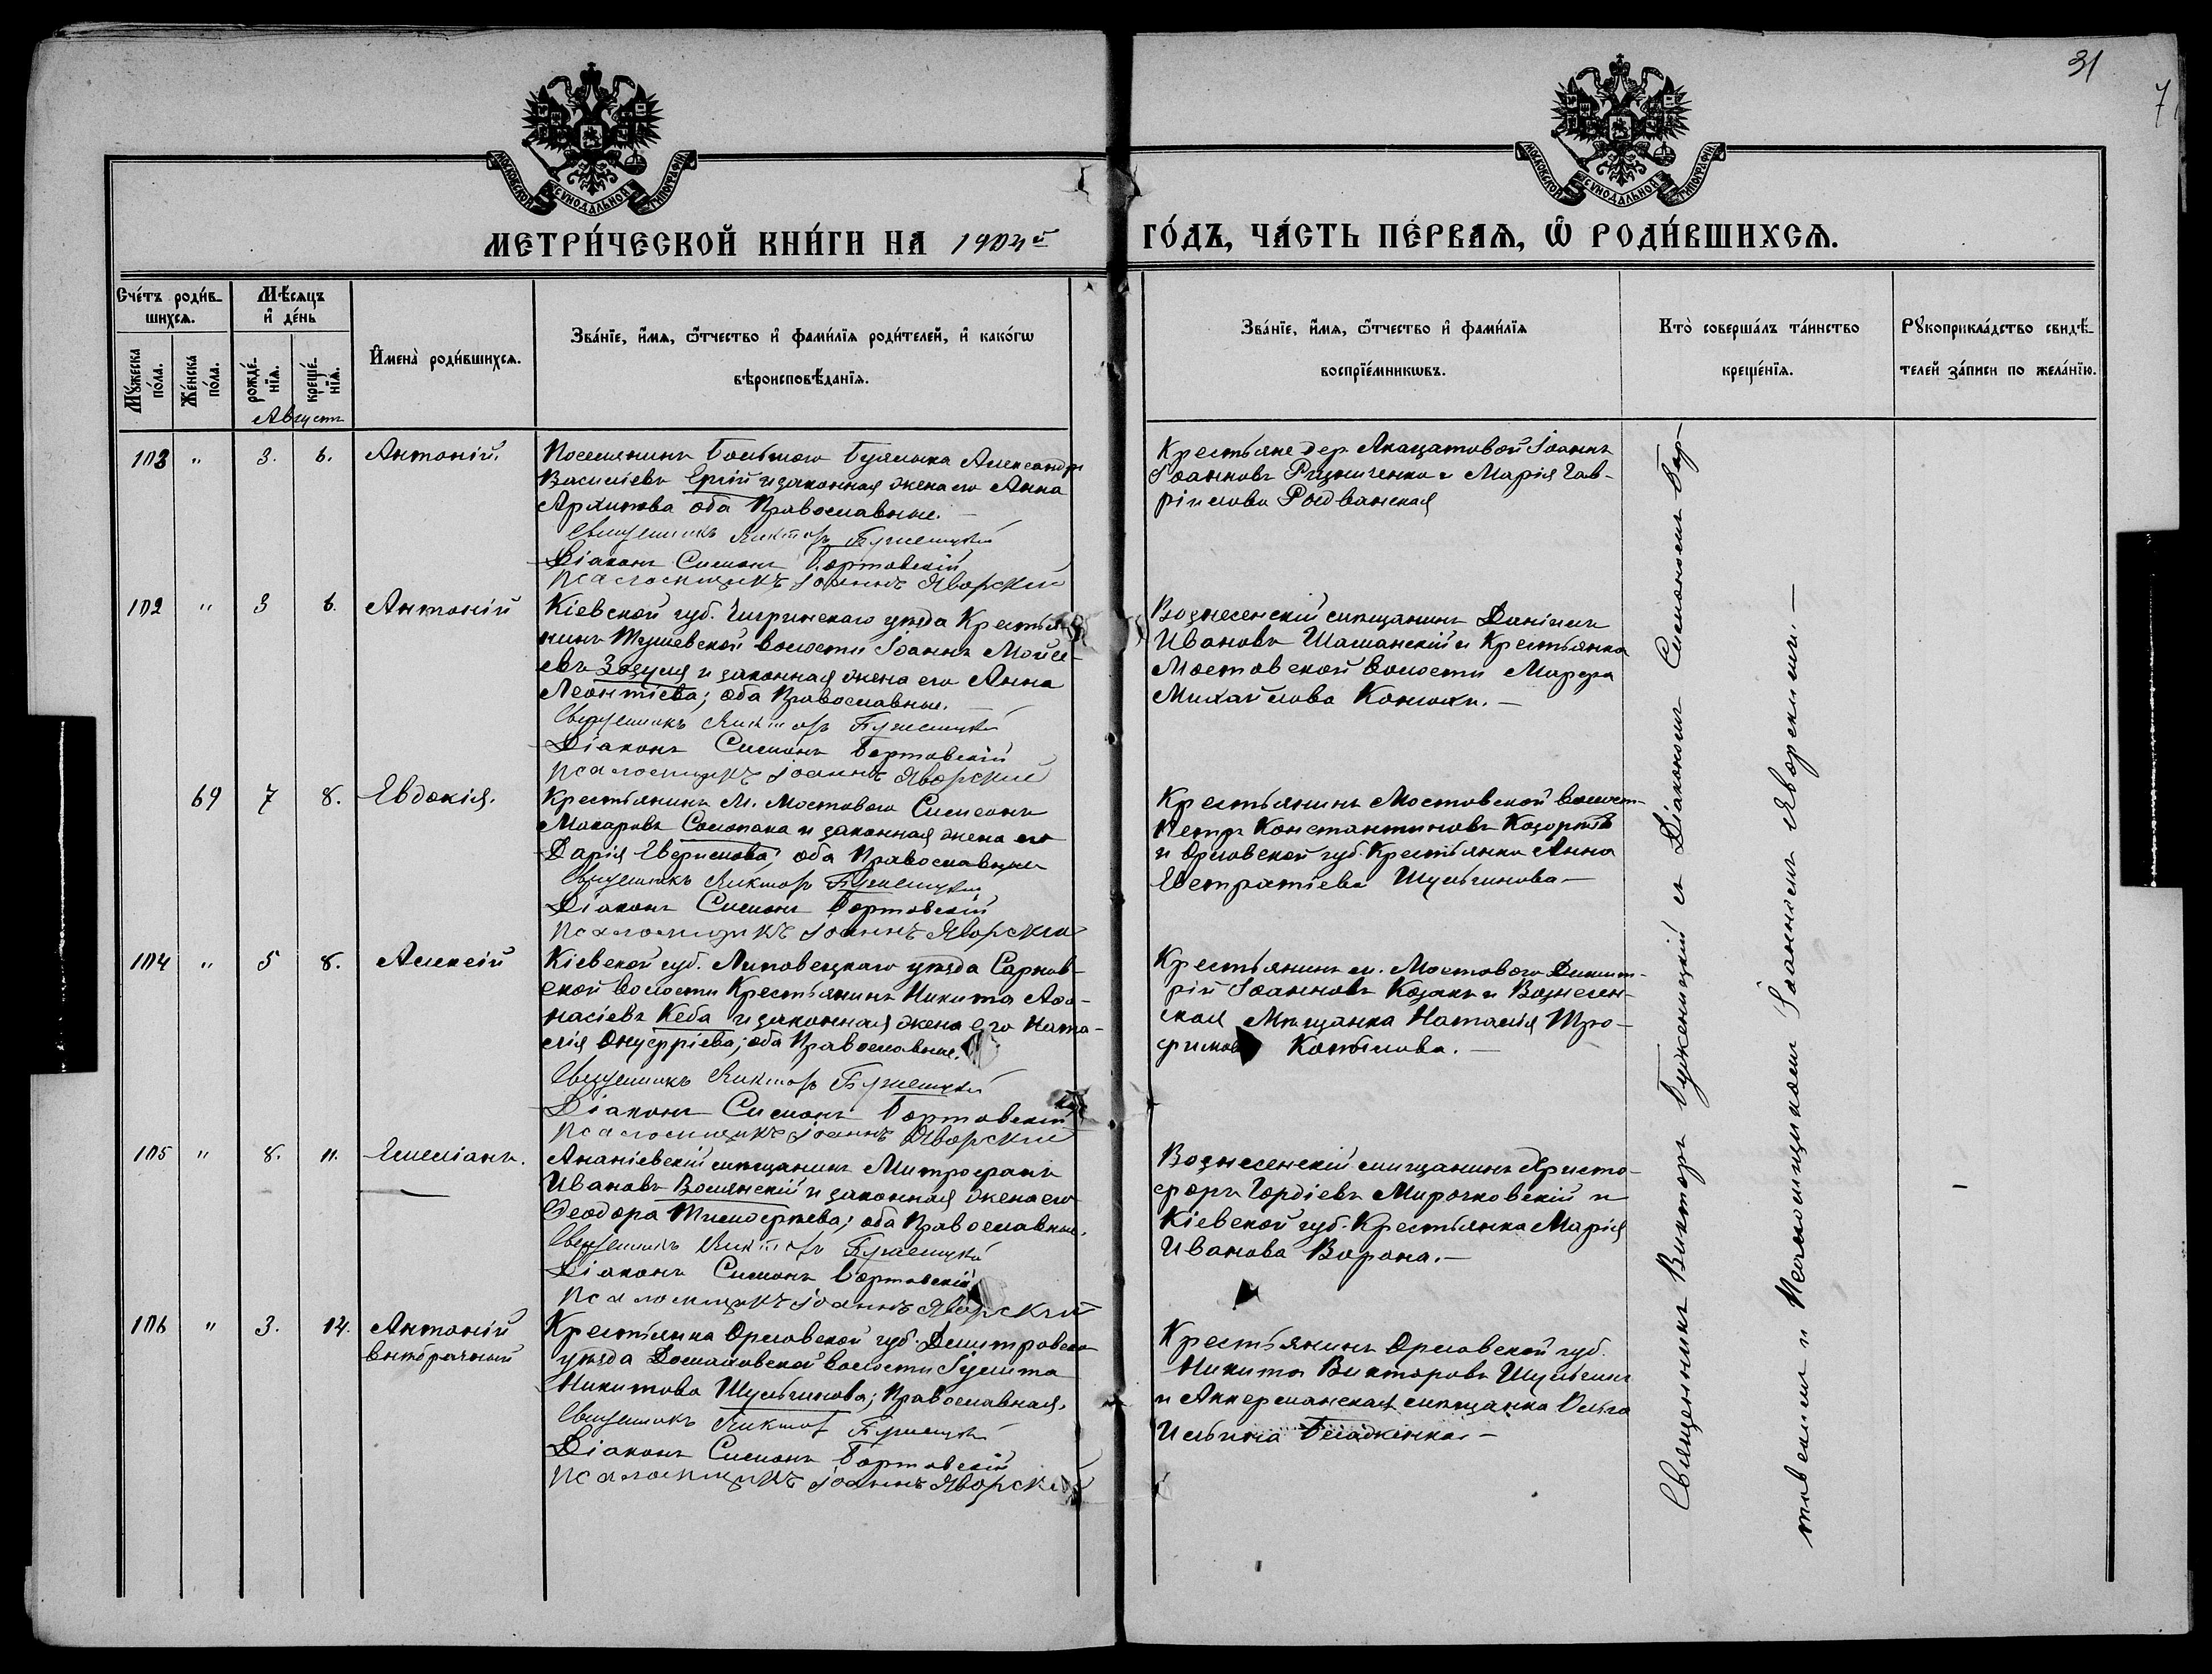 31
7
МОСКОВСКОЙ СѴНОДАЛЬНОЙ ТИПОГРАФІИ
МОСКОВСКОЙ СѴНОДАЛЬНОЙ ТИПОГРАФІИ
МЕТРИ́ЧЕСКОЙ КНИ́ГИ НА 1904й ГО́ДЪ, ЧА́СТЬ ПЕ́РВАѦ, Ѽ РОДИ́ВШИХСѦ.
Сче́тъ роди́в-
шихсѧ.
Мꙋ́жеска по́ла.
Же́нска по́ла.
Мѣ́сѧцъ
и҆ де́нь
рожде́-
нїѧ.
креще́-
нїѧ.
Августъ
И҆мена̀ роди́вшихсѧ.
Зва́нїе, и҆́мѧ, ѻ҆́тчество и҆ фами́лїѧ роди́телей, и҆ како́гѡ
вѣроисповѣ́данїѧ.
Зва́нїе, и҆́мѧ, ѻ҆́тчество и҆ фами́лїѧ
воспрїе́мникѡвъ.
Кто̀ соверша́лъ та́инство
креще́нїѧ.
Рꙋкоприкла́дство свидѣ́-
телей за́писи по жела́нїю.
103 " 3. 6. Антоній.
Поселянинъ Большого Буялыка Александръ
Василіевъ Ергій и законная жена его Анна
Архипова оба Православные.
Священникъ Викторъ Буженицкій
Діаконъ Симонъ Бортовскій
псаломщикъ Іоаннъ Яворскій
Крестьяне дер. Акацатовой Іоаннъ
Іоанновъ и Марія Гав-
ріилова Росдванская
102 " 3 6. Антоній
Кіевской губ. Чигринскаго уѣзда Крестья-
нинъ волости Іоаннъ Мойсе-
евъ Зозуля и законная жена его Анна
Леонтіева; оба Православные.
Священникъ Викторъ Буженицкій
Діаконъ Симонъ Бортовскій
псаломщикъ Іоаннъ Яворскій
Вознесенскій мѣщанинъ Даніилъ
Ивановъ Шаманскій и Крестьянка
Мостовской волости Марѳа
Михайлова Конюхи. —
69 7 8. Евдокія.
Крестьянинъ м. Мостового Симеонъ
Макаровъ Соломака и законная жена его
Дарія Гаврилова; оба Православные
Священникъ Викторъ Буженицкій
Діаконъ Симонъ Бортовскій
псаломщикъ Іоаннъ Яворскій
Крестьянинъ Мостовской волост-
Петръ Константиновъ
и Орловской губ. Крестьянка Анна
Евстратіева Шульгинова —
104 " 5 8. Алексій
Кіевской губ. Липовецкаго уѣзда Сарнов-
ской волости Крестьянинъ Никита Аѳа-
насіевъ Кеба и законная жена его Ната-
лія Онуфріева; оба Православные.
Священникъ Викторъ Буженицкій
Діаконъ Симонъ Бортовскій
псаломщикъ Іоаннъ Яворскій
Крестьянинъ м. Мостового Димит-
рій Іоанновъ Козакъ и Вознесен-
ская Мѣщанка Наталія Тро-
фимова Копылова. —
105 " 8. 11. Емеліанъ.
Ананіевскій мѣщанинъ Митрофанъ
Ивановъ Волянскій и законная жена его
Ѳеодора Тимоѳеева; оба Православные.
Священникъ Викторъ Буженицкій
Діаконъ Симонъ Бортовскій
псаломщикъ Іоаннъ Яворскій
Вознесенскій мѣщанинъ Христо-
форъ Гордіевъ Мирочковскій и
Кіевской губ. Крестьянка Марія
Иванова Ворона. —
106 " 3. 14. Антоній
внѣбрачный
Крестьянка Орловской губ. Дмитровск
уѣзда Домаховской волости Іулита
Никитова Шульгинова; Православная.
Священникъ Викторъ Буженицкій
Діаконъ Симонъ Бортовскій
псаломщикъ Іоаннъ Яворскій
Крестьянинъ Орловской губ.
Никита Викторовъ Шульгинъ
и Аккерманская мѣщанка Ольга
Ильина
Священникъ Викторъ Буженицкій съ Діакономъ Симономъ Бор-
товскимъ и Псаломщикомъ Іоанномъ Яворскимъ. —